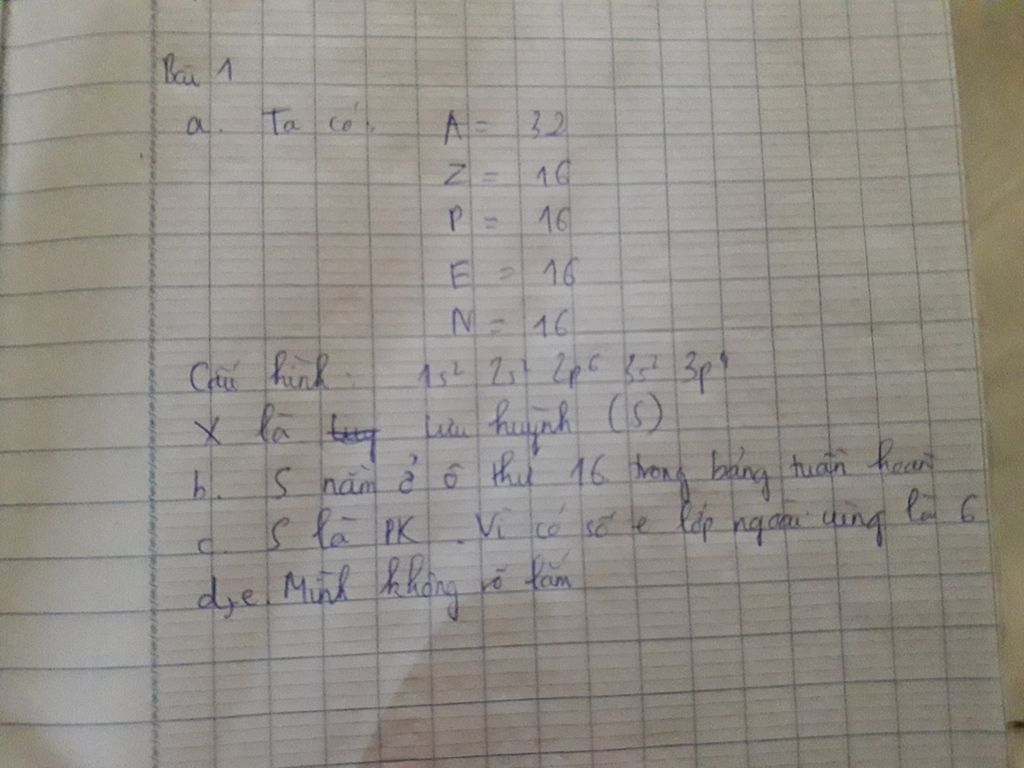 Bài 1
a. Ta có: A = 32
Z = 16
P = 16
E = 16
N = 16
Cấu hình: 1s² 2s² 2p⁶ 3s² 3p⁴
X là lưu huỳnh (S)
b. S nằm ở ô thứ 16 trong bảng tuần hoàn
c. S là PK. Vì có số e lớp ngoài cùng là 6
d,e Mình không rõ lắm